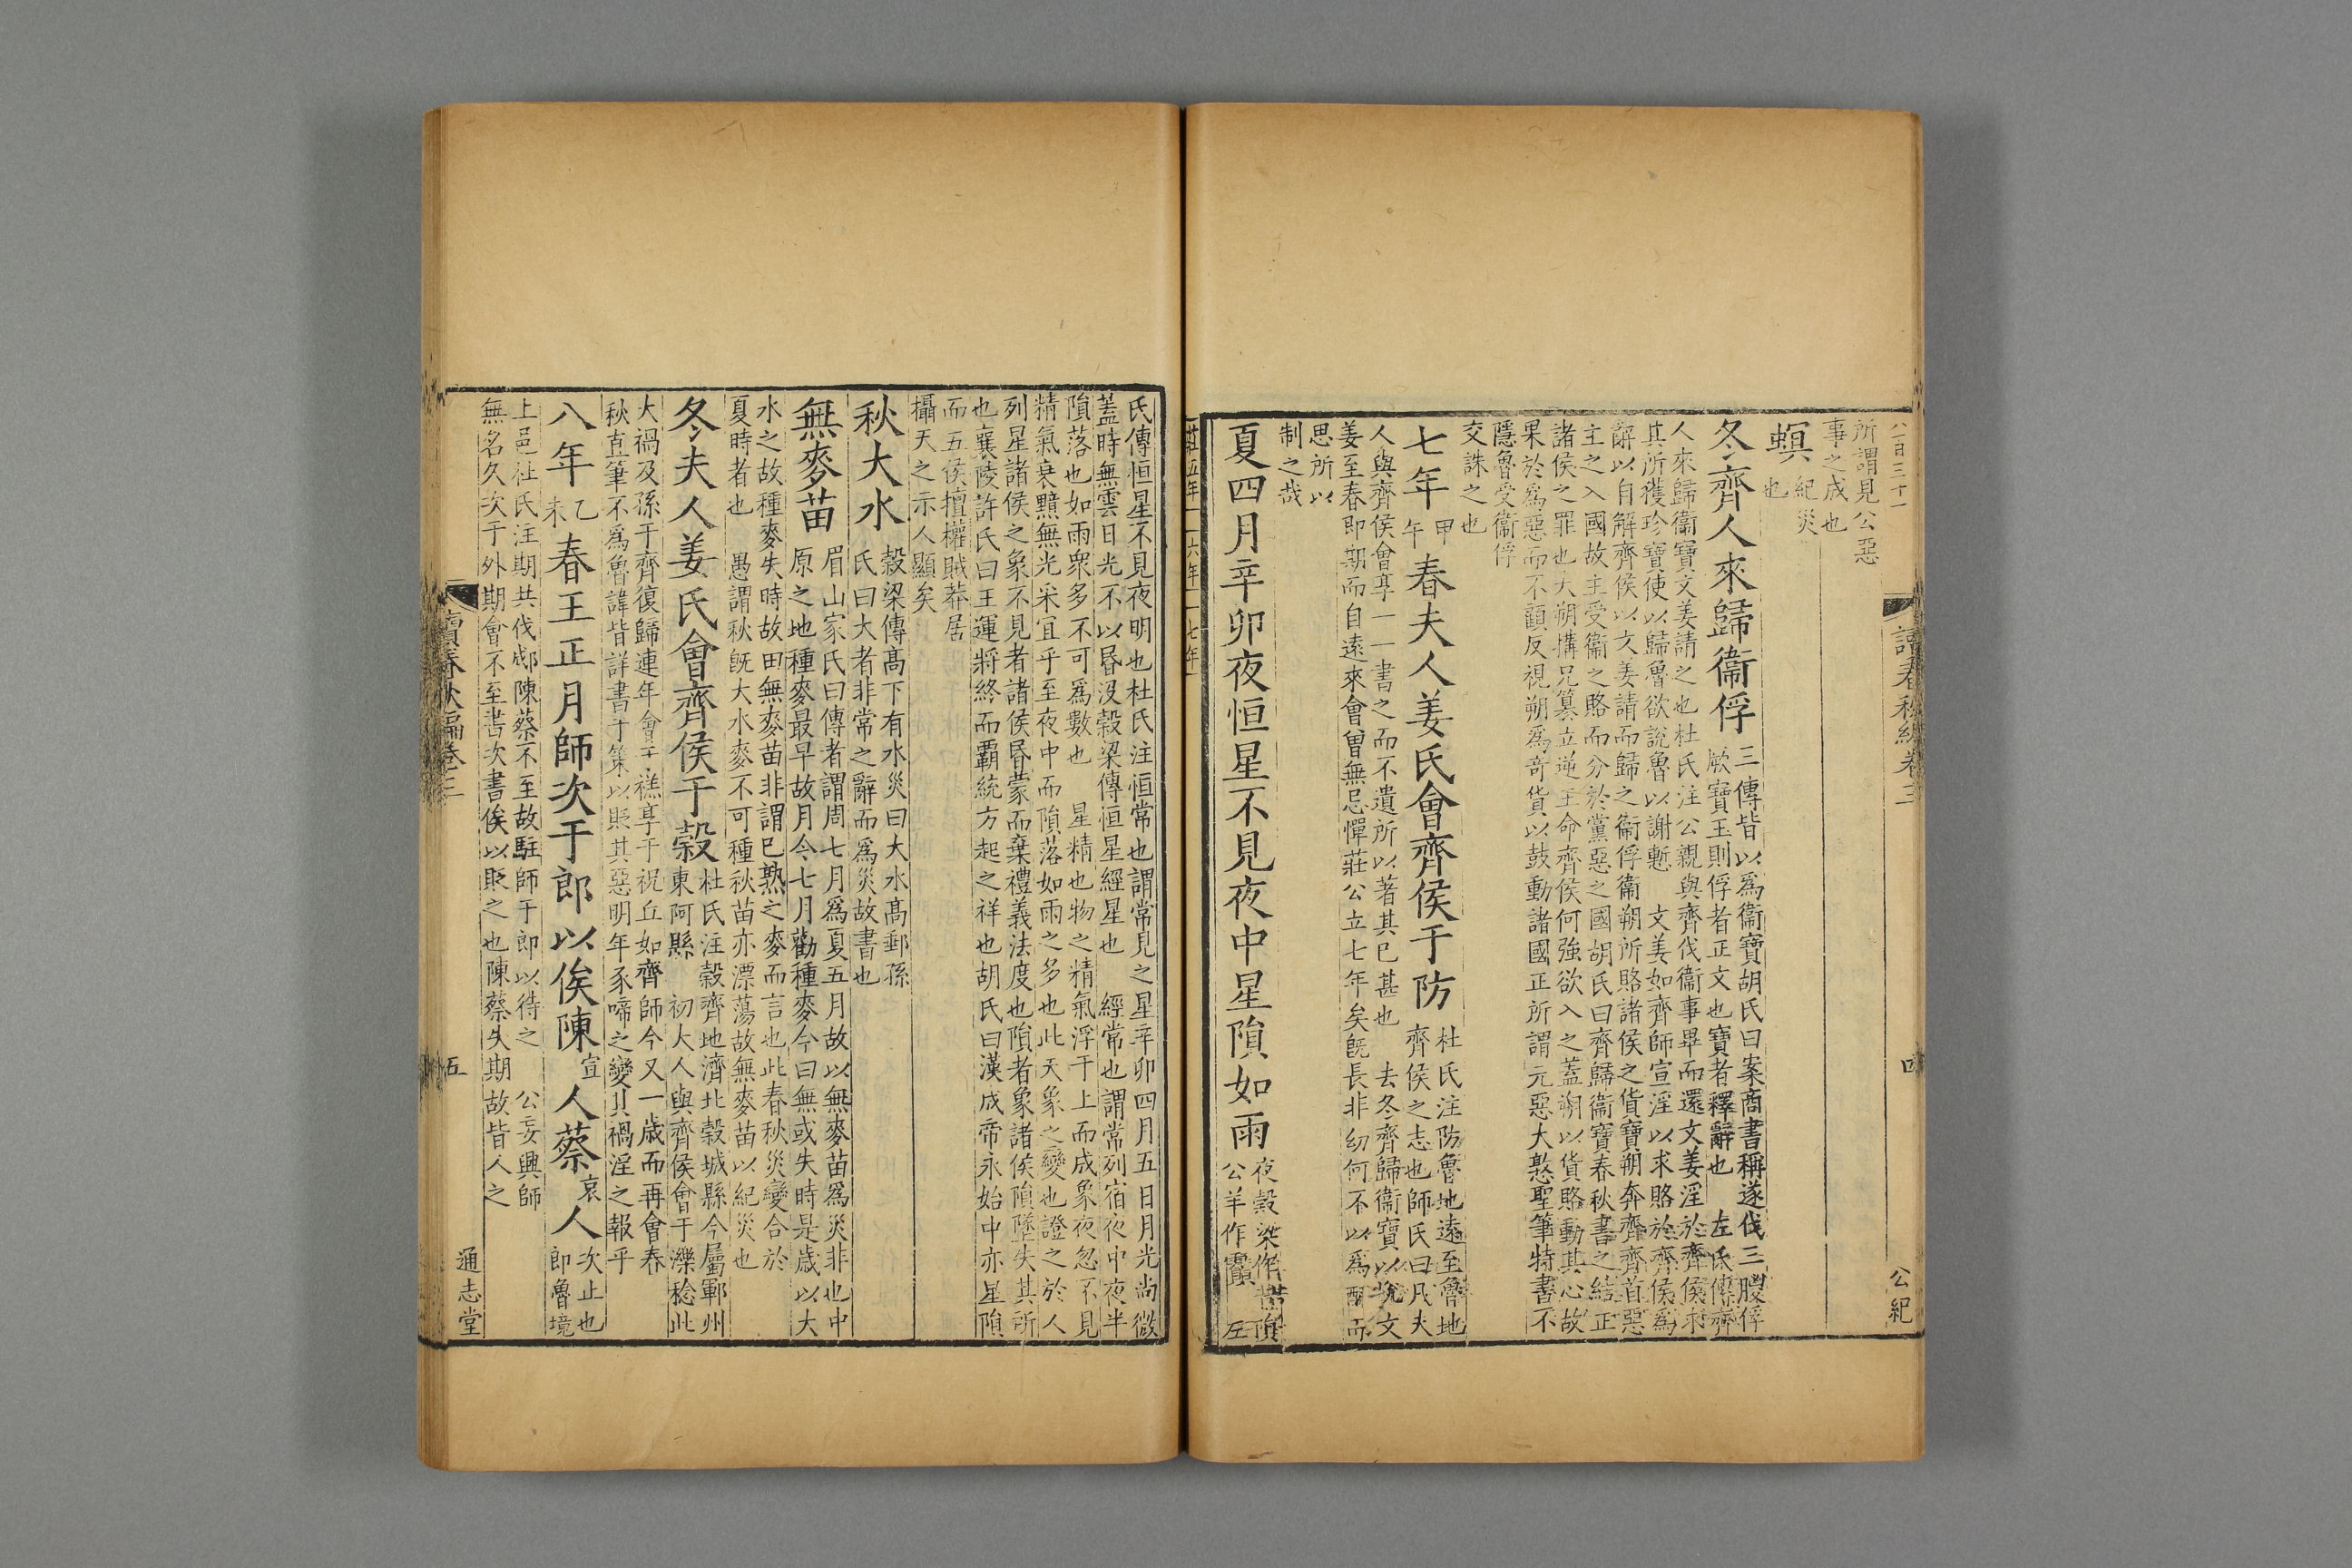 八百三十一
讀春秋編卷三
四
公紀
所謂見公惡
事之成也
螟
紀災
也
冬齊人來歸衞俘
三傳皆以爲衞寶胡氏曰案商書稱遂伐三朡俘
厥寶玉則俘者正文也寶者釋辭也　左氏傳齊
人來歸衞寶文姜請之也杜氏注公親與齊伐衞事畢而還文姜淫於齊侯求
其所獲珍寶使以歸魯欲說魯以謝慙　文姜如齊師宣淫以求賂於齊侯爲
辭以自解齊侯以文姜請而歸之衞俘衞朔所賂諸侯之貨寶朔奔齊齊首惡
主之入國故主受衞之賂而分於黨惡之國胡氏曰齊歸衞寶春秋書之結正
諸侯之罪也夫朔搆兄篡立逆王命齊侯何強欲入之蓋朔以貨賂動其心故
果於爲惡而不顧反視朔爲奇貨以鼓動諸國正所謂元惡大憝聖筆特書不
隱魯受衞俘
交誅之也
七年
甲
午
春夫人姜氏會齊侯于防
杜氏注防魯地遠至魯地
齊侯之志也師氏曰凡夫
人與齊侯會享一一書之而不遺所以著其已甚也　去冬齊歸衞寶以說文
姜至春即期而自遠來會曾無忌憚莊公立七年矣旣長非幼何不以爲醜而
思所以
制之哉
夏四月辛卯夜恒星不見夜中星隕如雨
夜穀梁作昔隕
公羊作霣　左
莊五年　六年　七年
氏傳恒星不見夜明也杜氏注恒常也謂常見之星辛卯四月五日月光尚微
蓋時無雲日光不以昏沒穀梁傳恒星經星也　經常也謂常列宿夜中夜半
隕落也如雨衆多不可爲數也　星精也物之精氣浮于上而成象夜忽不見
精氣衰黯無光采宜乎至夜中而隕落如雨之多也此天象之變也證之於人
列星諸侯之象不見者諸侯昏蒙而棄禮義法度也隕者象諸侯隕墜失其所
也襄陵許氏曰王運將終而霸統方起之祥也胡氏曰漢成帝永始中亦星隕
而五侯擅權賊莽居
攝天之示人顯矣
秋大水
穀梁傳高下有水災曰大水高郵孫
氏曰大者非常之辭而爲災故書也
無麥苗
眉山家氏曰傳者謂周七月爲夏五月故以無麥苗爲災非也中
原之地種麥最早故月令七月勸種麥今曰無或失時是歲以大
水之故種麥失時故田無麥苗非謂已熟之麥而言也此春秋災變合於
夏時者也　愚謂秋旣大水麥不可種秋苗亦漂蕩故無麥苗以紀災也
冬夫人姜氏會齊侯于穀
杜氏注穀齊地濟北穀城縣今屬鄆州
東阿縣　初夫人與齊侯會于濼稔此
大禍及孫于齊復歸連年會于禚享于祝丘如齊師今又一歲而再會春
秋直筆不爲魯諱皆詳書于策以貶其惡明年豕啼之變其禍淫之報乎
八年
乙
未
春王正月師次于郎以俟陳
宣
人蔡
哀
人
次止也
郎魯境
上邑杜氏注期共伐郕陳蔡不至故駐師于郎以待之　公妄興師
無名久次于外期會不至書次書俟以貶之也陳蔡失期故皆人之
讀春秋編卷三
五
通志堂